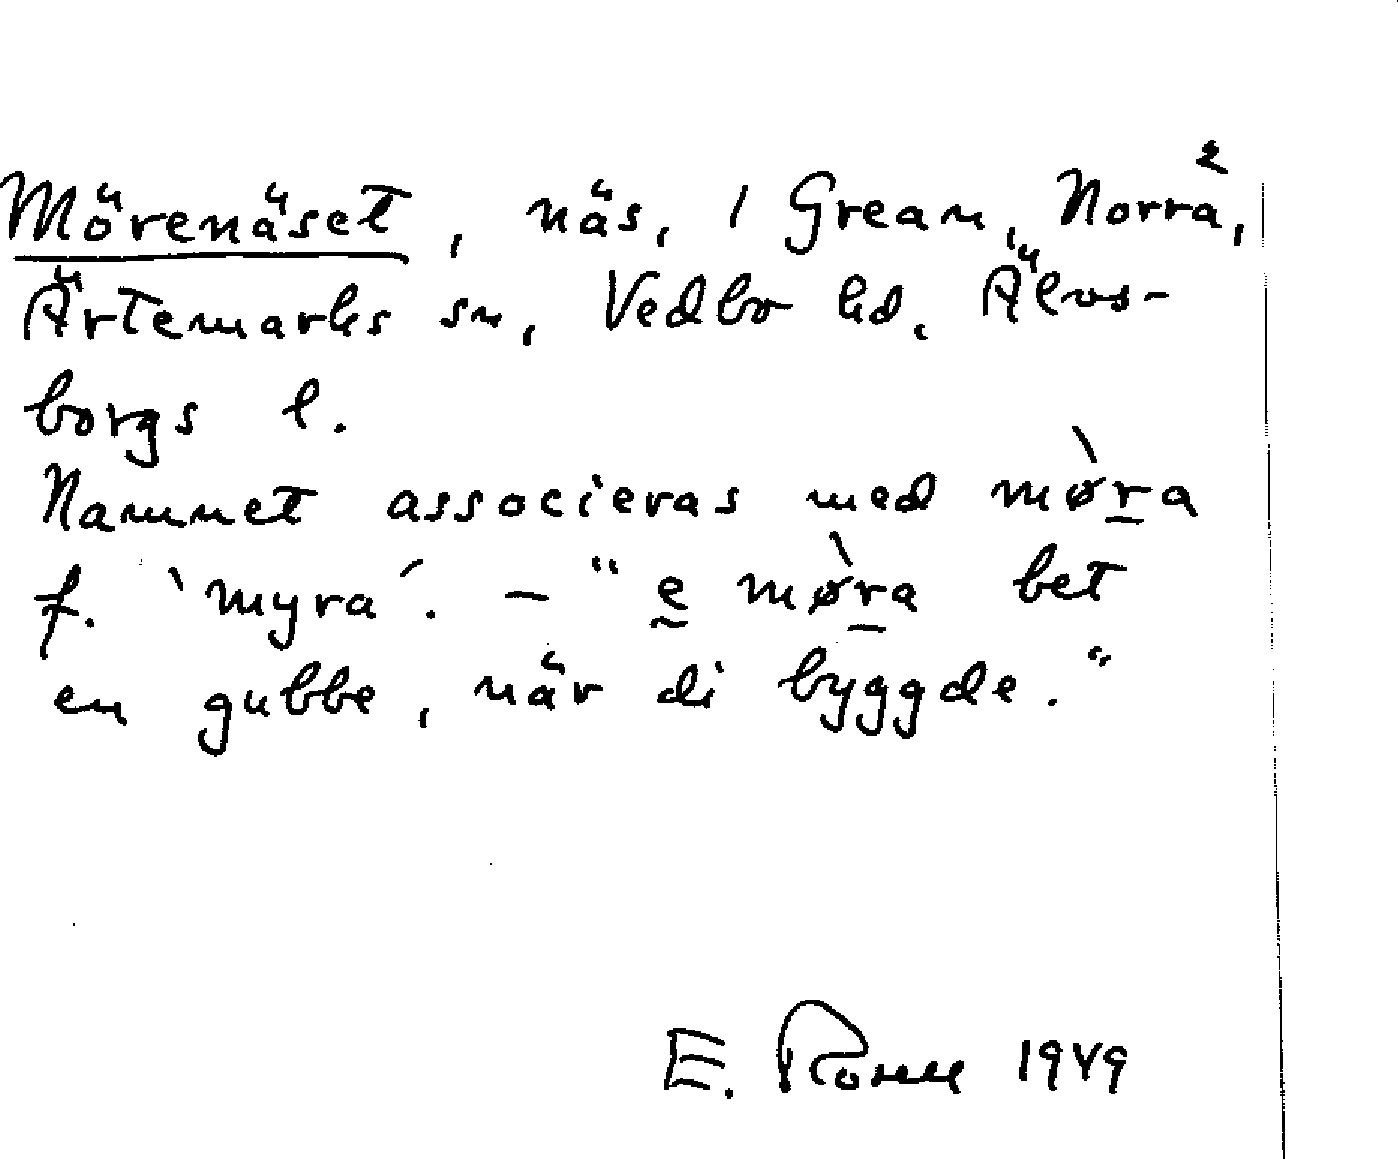 Mörenäset, näs, 1 Grean, Norra²,
Ärtemarks sn, Vedbo hd. Älvs-
borgs l.
Namnet associeras med mø̀r̲a
f. `myra´. – "ḛ mø̀r̲a bet
en gubbe, när di byggde."
E. 1949